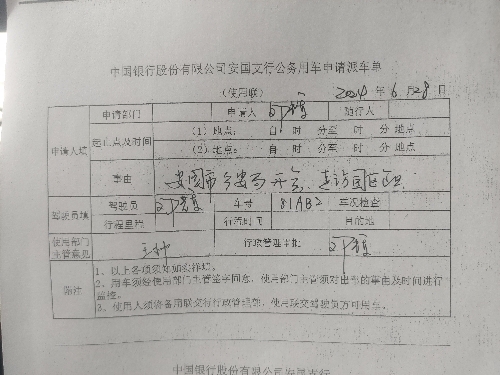 中国银行股份有限公司安国支行公务用车申请派车单
（使用联） 2024 年 6 月 28 日
申请部门 申请人 随行人
申请人填 起止点及时间 （1）地点： 自 时 分至 时 分 地点
（2）地点： 自 时 分至 时 分 地点
事由 安国市公安局开会，走访园区
驾驶员填 驾驶员 车号 81AB2 车况检查
行程里程 行驶时间 目的地
使用部门主管意见 行政管理审批
附注 1、以上各项须如实详填。
2、用车须经使用部门主管签字同意，使用部门主管须对出车的事由及时间进行
监控。
3、使用人须将备用联交行政管理部，使用联交驾驶员方可用车。
中国银行股份有限公司安国支行